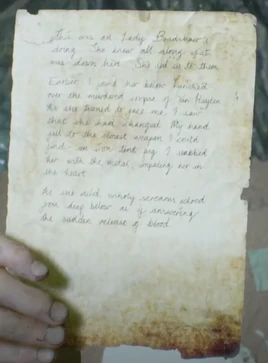 This was all Lady Bradshaw's
doing. She knew all along what
was down here. She led us to them
Earlier, I found her below hunched
over the murdered corpse of
As she turned to face me, I saw
that she had changed. My hand
fell to the closest weapon I could
find - an iron tent peg. I stabbed
her with the metal, impaling her in
the heart
As she died, unholy screams echoed
from deep below as if answering
the sudden release of blood